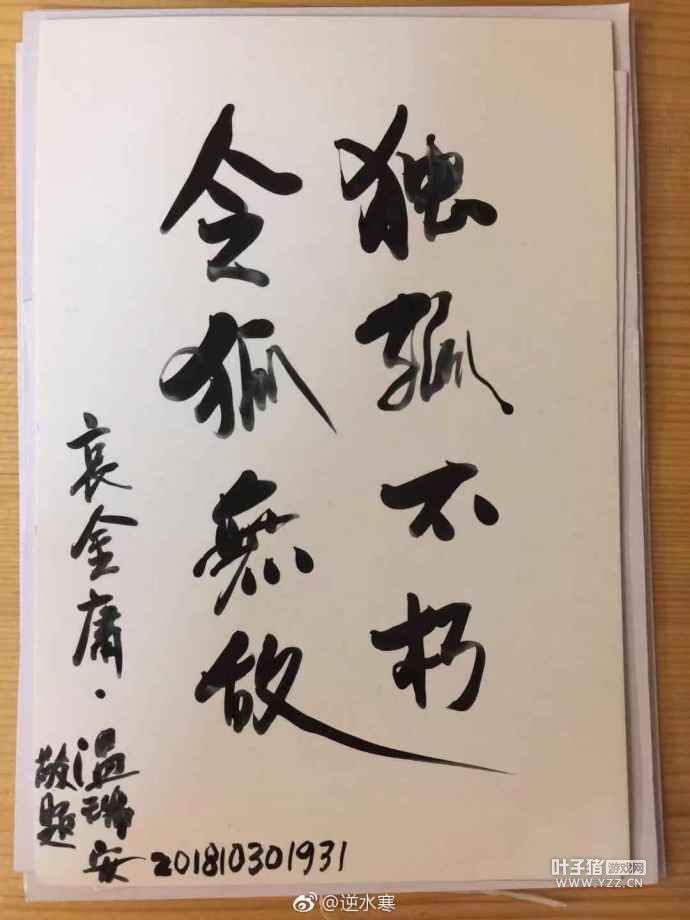 独孤不朽
令狐無敌
哀金庸·温瑞安
敬题
201810301931
@逆水寒
叶子猪游戏网
WWW.YZZ.CN